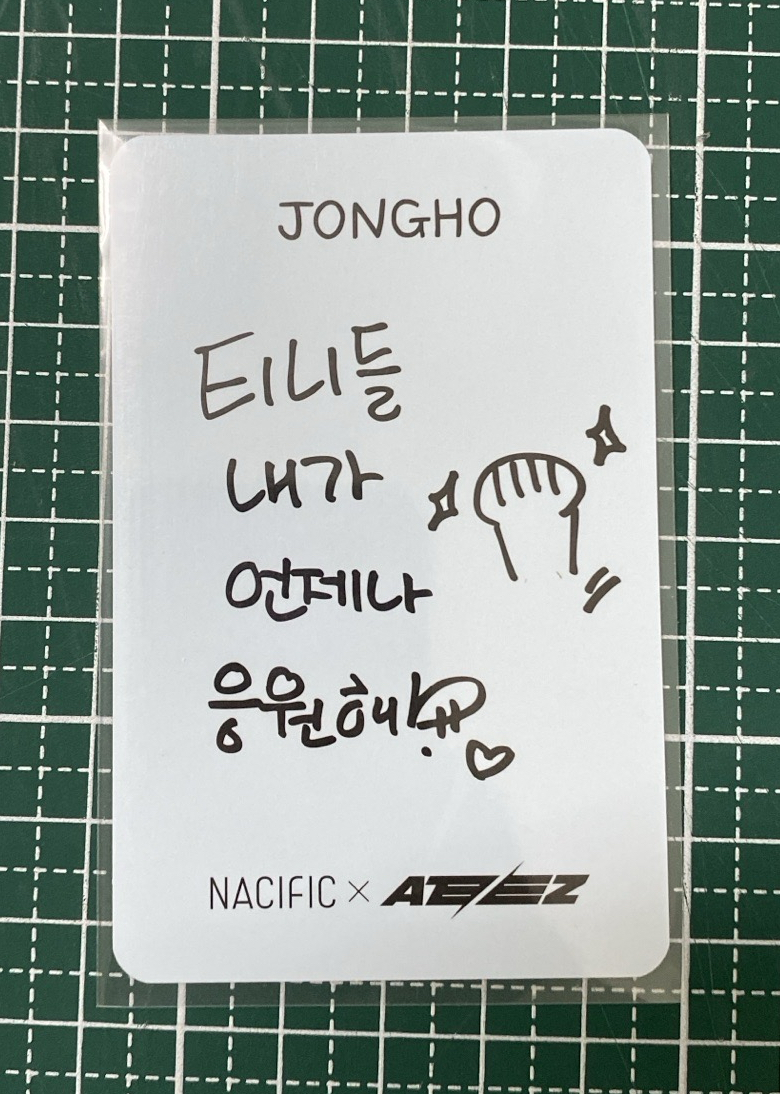 JONGHO
티니들
내가
언제나
응원해!
NACIFIC × ATEEZ